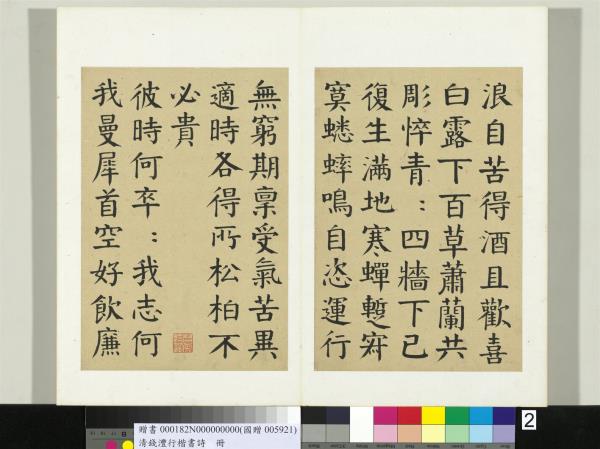 浪自苦得酒且歡喜
白露下百草蕭蘭共
彫悴青：四牆下已
復生滿地寒蟬蹔寂
寞蟋蟀鳴自恣運行
無窮期稟受氣苦異
適時各得所松柏不
必貴
彼時何卒：我志何
我曼犀首空好飲廉
2
贈書 000182N000000000(國贈 005921)
清錢澧行楷書詩 冊